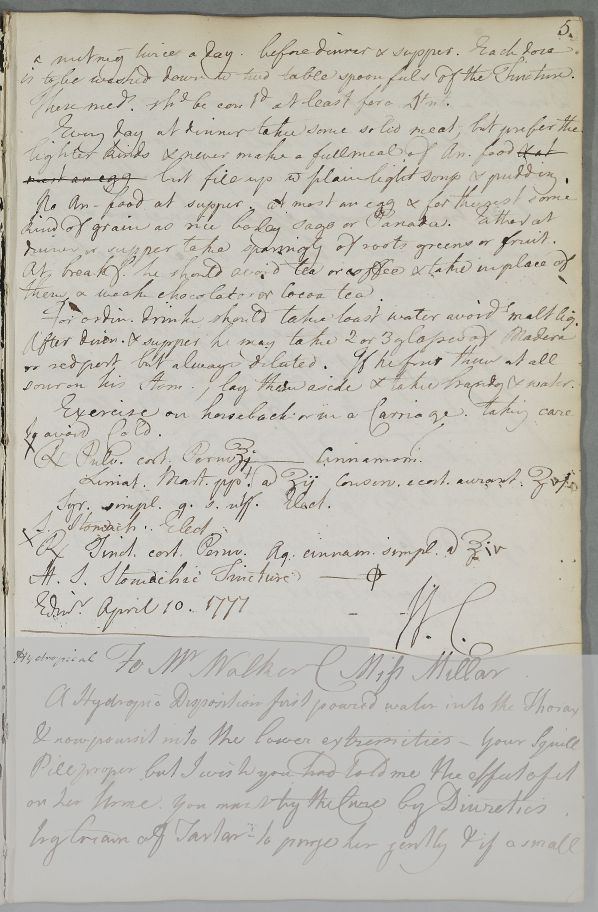 5.
a nutmeg twice a day. before dinner & supper. Each dose
is to be washed down w two table spoonfuls of the Tincture.
These med. shd be contd at least for a
Every day at dinner take some solid meat, but prefer the
lighter kinds & never make a full meal of An. food & at
most an egg but fill up w plain light soup & pudding.
No An. food at supper, at most an egg & for the rest some
kind of grain as rice barley sago or Panada. Either at
dinner or supper take sparingly of roots greens or fruit.
At breakf. he should avoid tea or coffee & take in place of
them a weak chocolate or cocoa tea.
For ordin. drink should take toast water avoid malt liq.
After dinn. & supper he may take 2 or 3 glasses of Madeira
or red port but always diluted. If he find them at all
sour on his Stom., lay them aside & take brandy & water.
Exercise on horseback or in a Carriage. taking care
to avoid Cold.
x ℞ Pulv. cort. Peruv. ℥j — Cinnamom.
Limat. Mart. ppt. a ʒij Conserv. e cort. aurant.
Syr. simpl. q. s. uff. Elect.
S. Stomach. Elect.
x ℞ Tinct. cort. Peruv. Aq. cinnam. simpl. a ℥iv
M. S. Stomachic Tincture
Edinr. April 10. 1771
W. C.
Hydropical To Mr Walker Miss Millar
A Hydropic Disposition first poured water into the Thorax
& now pours it into the lower extremities – Your Squill
Pill proper but I wish you had told me the effect of it
on her Urine. You must try the Cure by Diuretics
by Cream of Tartar – to purge her gently & if a small